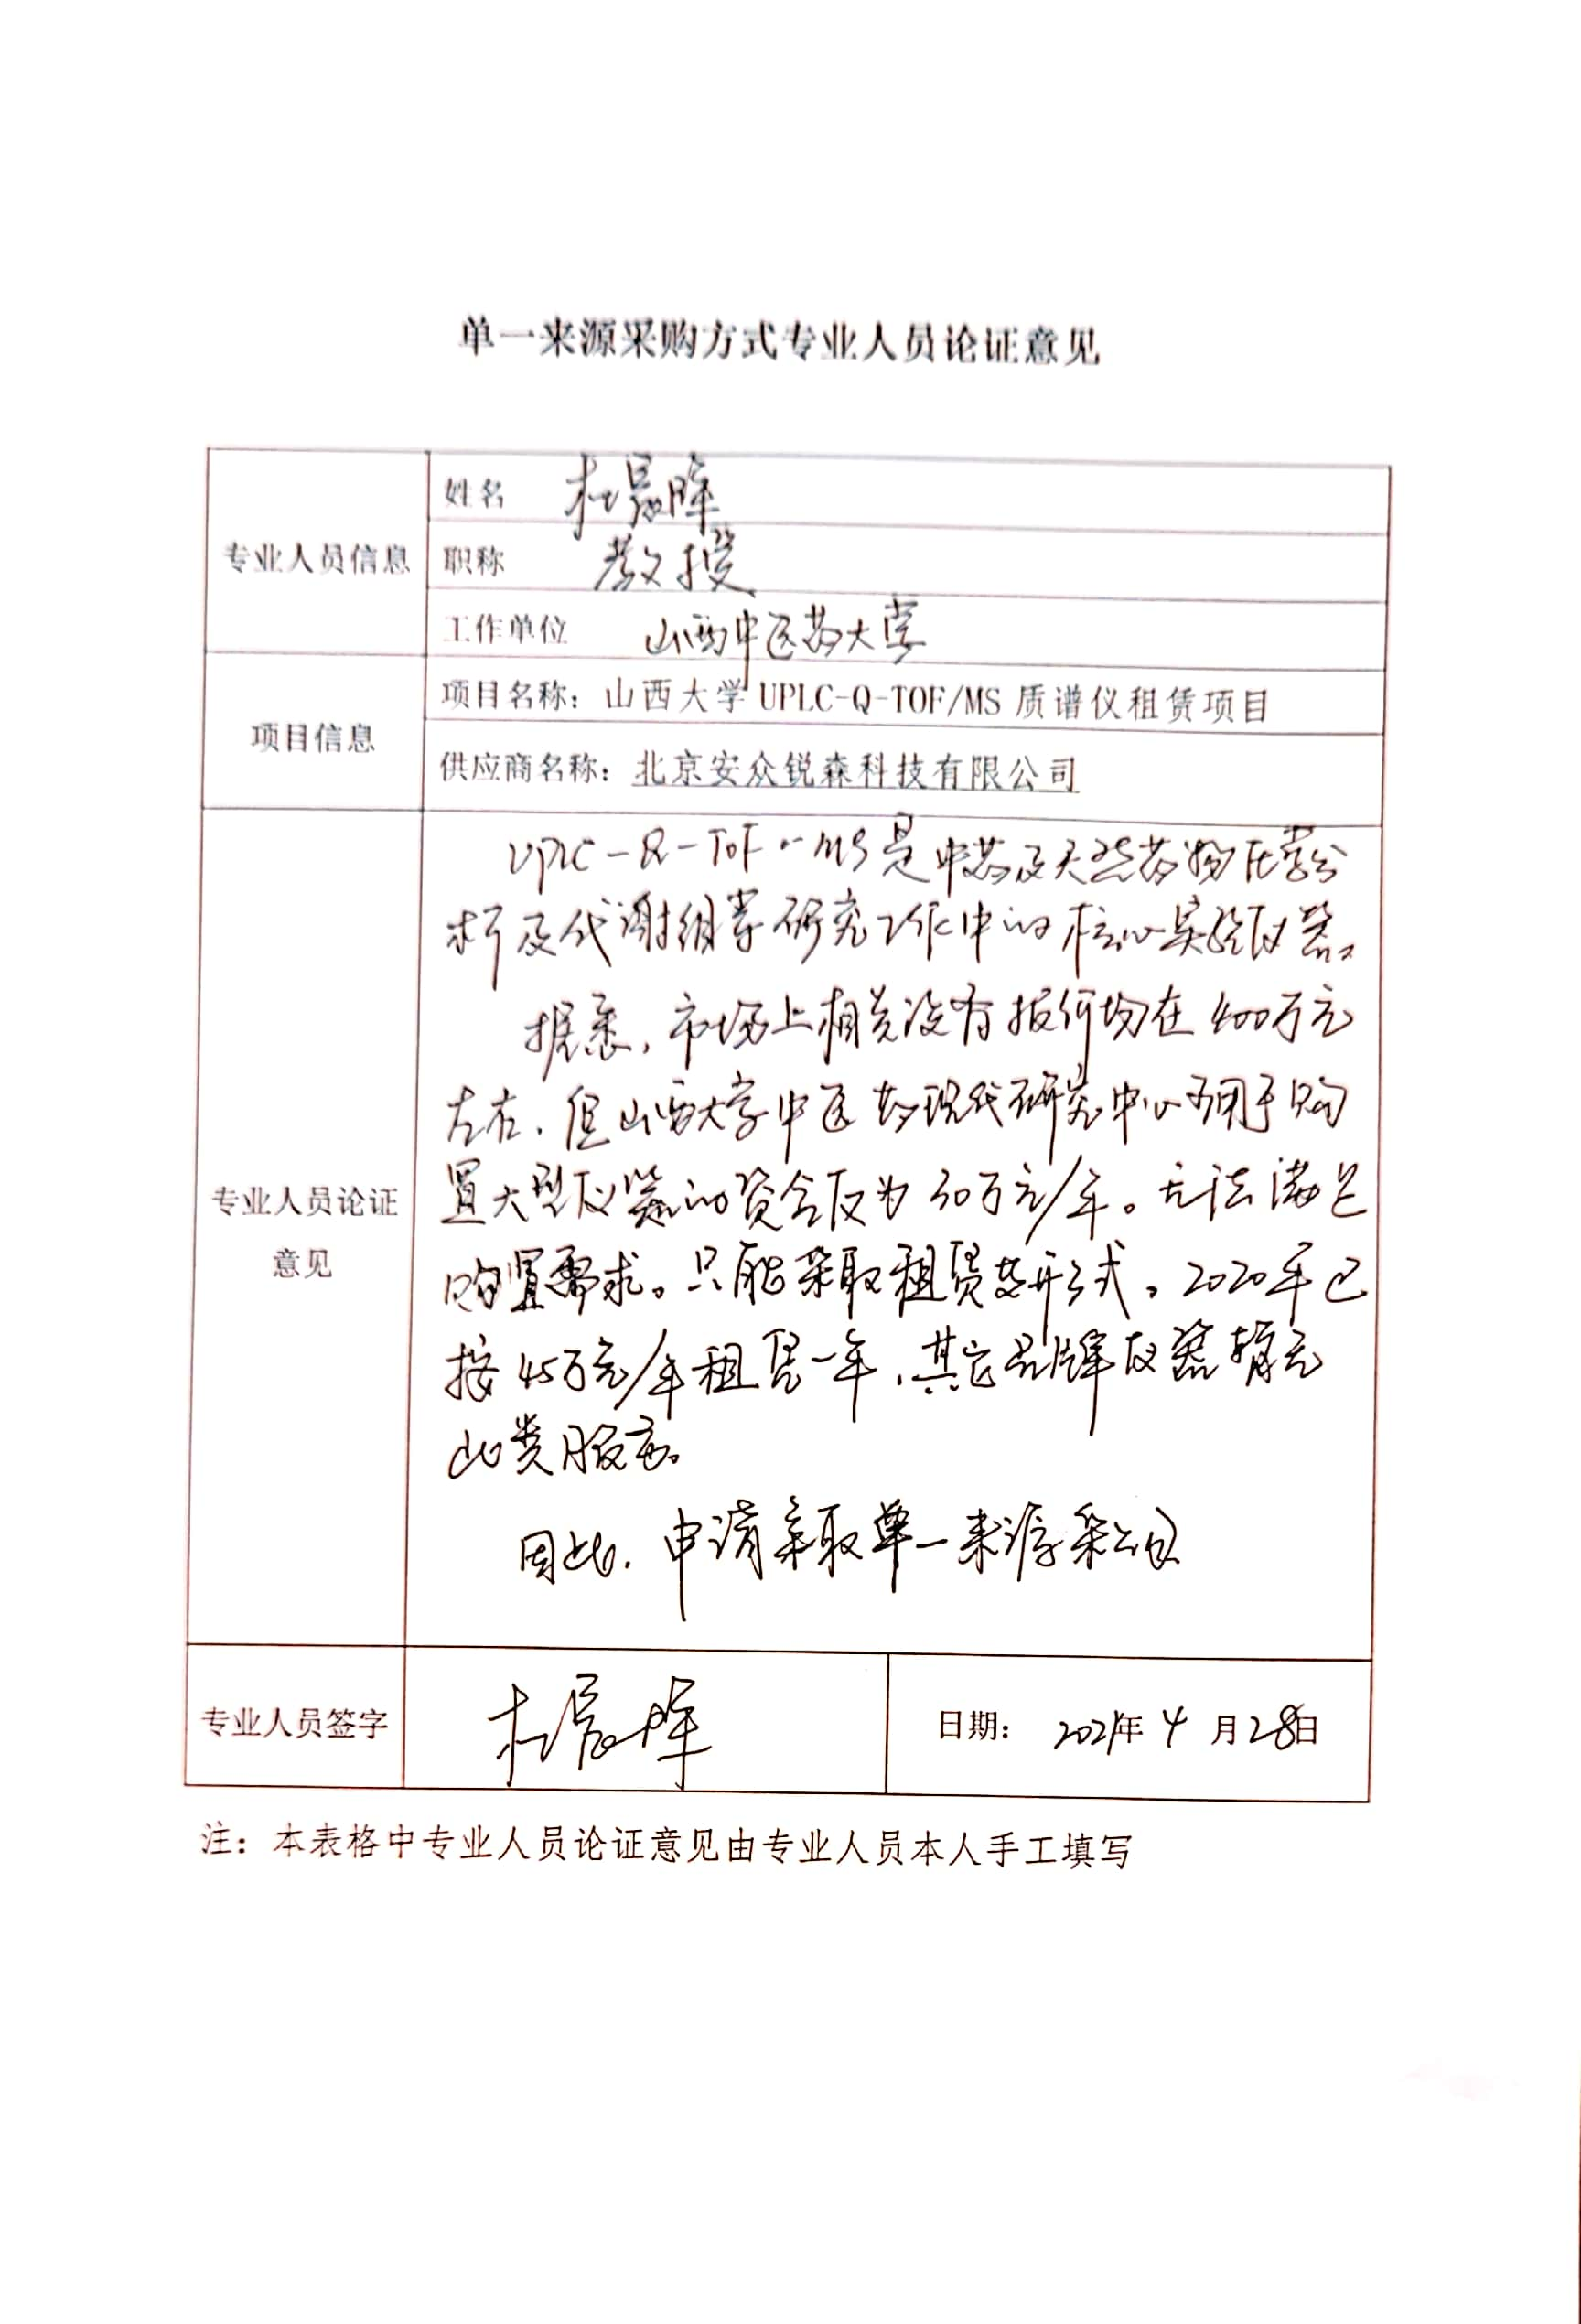 单一来源采购方式专业人员论证意见
专业人员信息
姓名 杜晨晖
职称 教授
工作单位 山西中医药大学
项目信息
项目名称：山西大学 UPLC-Q-TOF/MS 质谱仪租赁项目
供应商名称：北京安众锐森科技有限公司
专业人员论证
意见
UPLC-Q-TOF-MS是中药及天然药物质量分
析及代谢组学研究工作中的核心实验仪器。
据悉，市场上相关设备报价均在400万元
左右，但山西大学中医药现代研究中心可用于购
置大型仪器的资金仅为50万元/年。无法满足
购置需求。只能采取租赁形式。2020年已
按45万元/年租赁一年，其它品牌仪器暂无
此类服务。
因此，申请采取单一来源采购
专业人员签字
杜晨晖
日期： 2021年 4 月28日
注：本表格中专业人员论证意见由专业人员本人手工填写